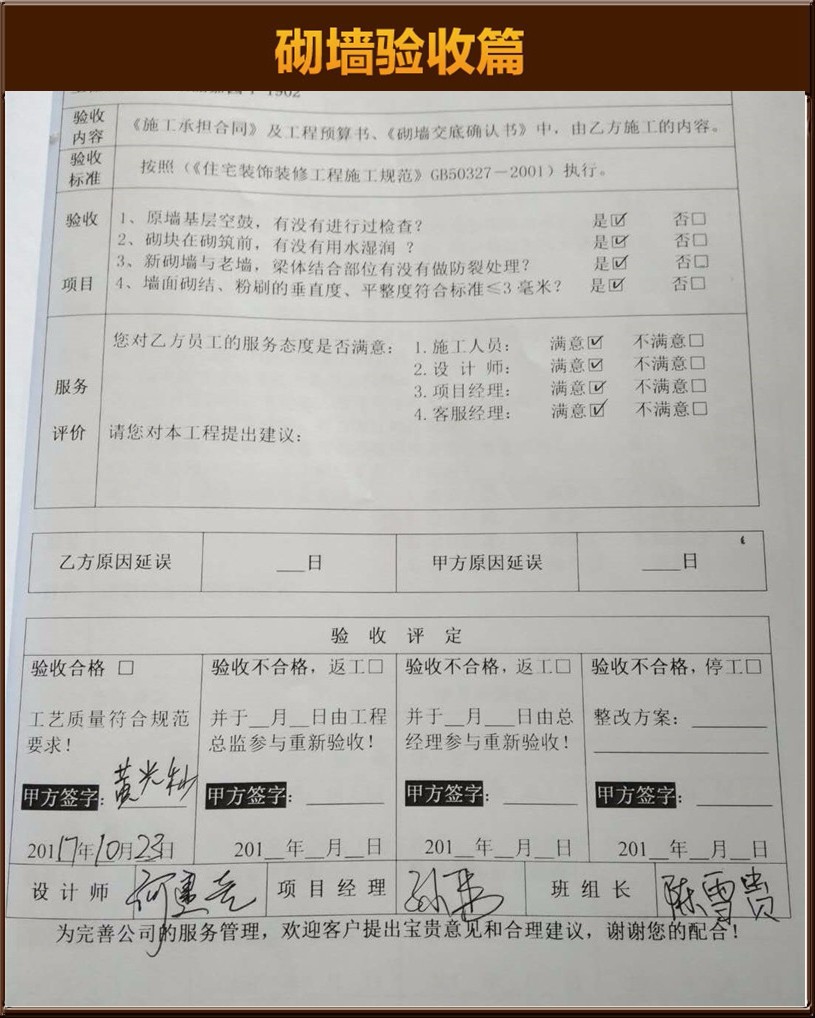 砌墙验收篇
1902
验收内容 《施工承担合同》及工程预算书、《砌墙交底确认书》中，由乙方施工的内容。
验收标准 按照（《住宅装饰装修工程施工规范》GB50327－2001）执行。
验收项目
1、原墙基层空鼓，有没有进行过检查？ 是☑ 否□
2、砌块在砌筑前，有没有用水湿润？ 是☑ 否□
3、新砌墙与老墙，梁体结合部位有没有做防裂处理？ 是☑ 否□
4、墙面砌结、粉刷的垂直度、平整度符合标准≤3毫米？ 是☑ 否□
服务评价
您对乙方员工的服务态度是否满意： 1.施工人员： 满意☑ 不满意□
2.设计师： 满意☑ 不满意□
3.项目经理： 满意☑ 不满意□
4.客服经理： 满意☑ 不满意□
请您对本工程提出建议：
乙方原因延误 ___日 甲方原因延误 ___日
验收评定
验收合格 □ 验收不合格，返工□ 验收不合格，返工□ 验收不合格，停工□
工艺质量符合规范 并于__月__日由工程 并于__月___日由总 整改方案：
要求！ 总监参与重新验收！ 经理参与重新验收！
甲方签字：黄光灿 甲方签字： 甲方签字： 甲方签字：
2017年10月23日 201__年__月__日 201__年__月__日 201__年__月__日
设计师 项目经理 班组长 陈雪贵
为完善公司的服务管理，欢迎客户提出宝贵意见和合理建议，谢谢您的配合！